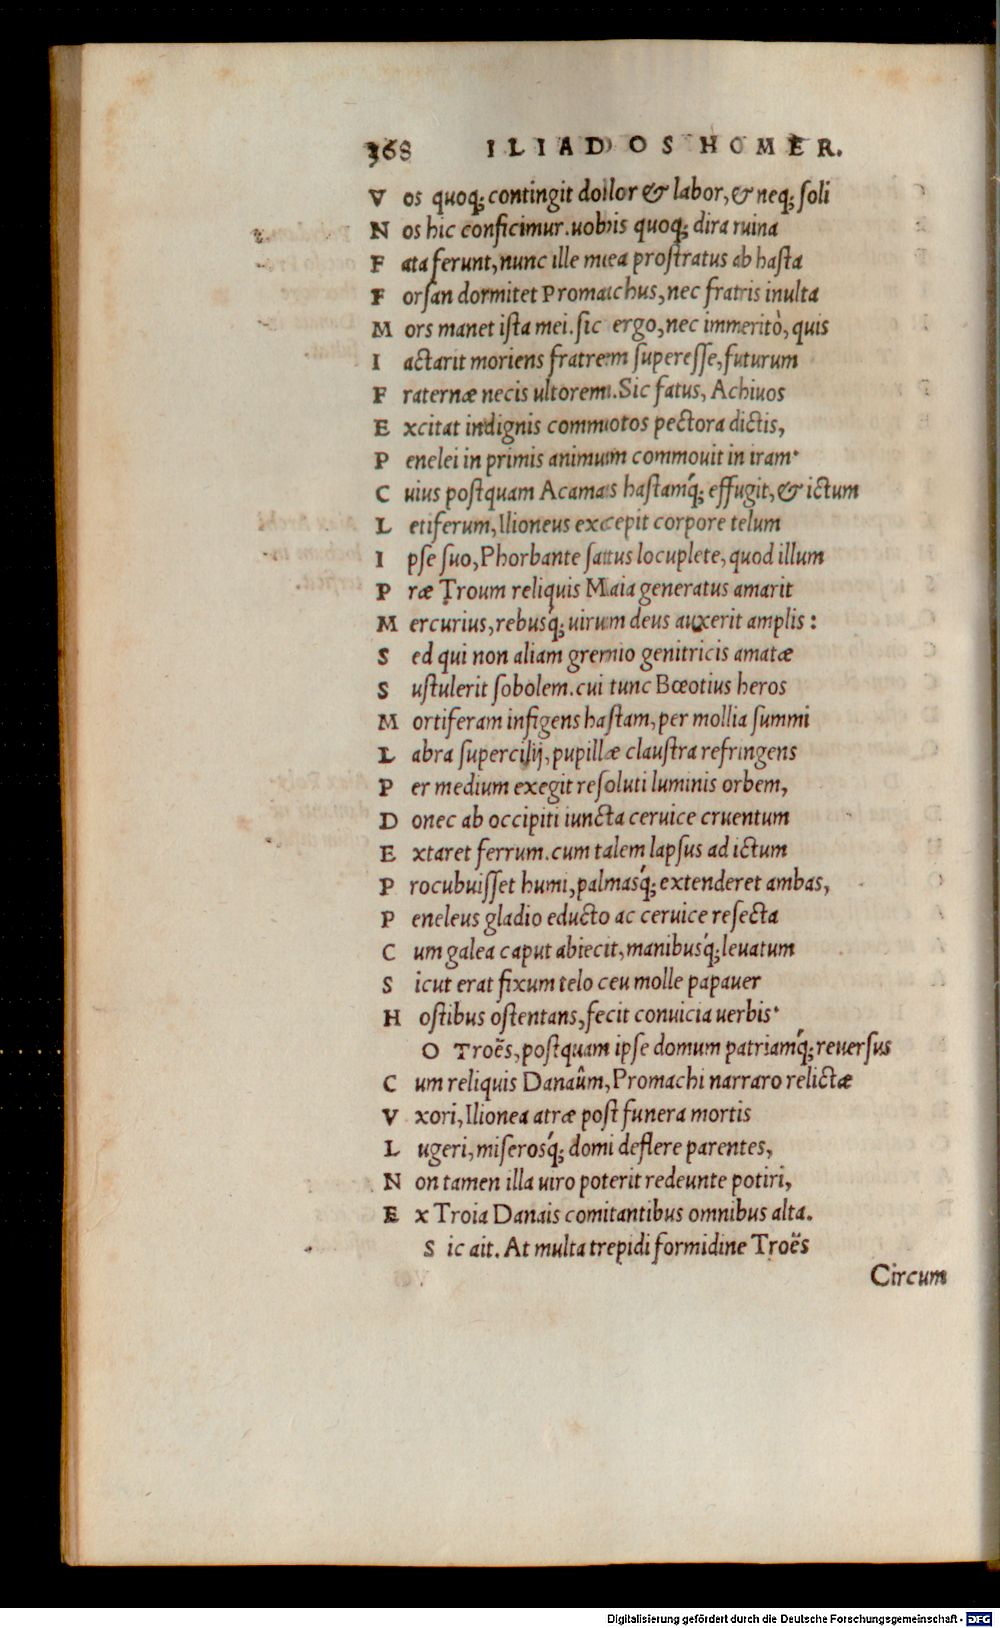 368 ILIADOS HOMER.
Vos quoq; contingit dolor & labor, & neq; soli
Nos hic conficimur. uobis quoq; dira ruina
Fata ferunt, nunc ille mea prostratus ab hasta
Forsan dormitet Promachus, nec fratris inulta
Mors manet ista mei. sic ergo, nec immeritò, quis
Iactarit moriens fratrem superesse, futurum
Fraternæ necis ultorem. Sic fatus, Achiuos
Excitat indignis commotos pectora dictis,
Penelei in primis animum commouit in iram·
Cuius postquam Acamas hastamq́; effugit, & ictum
Letiferum, Ilioneus excepit corpore telum
Ipse suo, Phorbante satus locuplete, quod illum
Præ Troum reliquis Maia generatus amarit
Mercurius, rebusq́; uirum deus auxerit amplis:
Sed qui non aliam gremio genitricis amatæ
Sustulerit sobolem. cui tunc Bœotius heros
Mortiferam infigens hastam, per mollia summi
Labra supercilij, pupillæ claustra refringens
Per medium exegit resoluti luminis orbem,
Donec ab occipiti iuncta ceruice cruentum
Extaret ferrum. cum talem lapsus ad ictum
Procubuisset humi, palmasq́; extenderet ambas,
Peneleus gladio educto ac ceruice resecta
Cum galea caput abiecit, manibusq́; leuatum
Sicut erat fixum telo ceu molle papauer
Hostibus ostentans, fecit conuicia uerbis·
O Troës, postquam ipse domum patriamq́; reuersus
Cum reliquis Danaûm, Promachi narraro relictæ
Vxori, Ilionea atræ post funera mortis
Lugeri, miserosq́; domi deflere parentes,
Non tamen illa uiro poterit redeunte potiri,
Ex Troia Danais comitantibus omnibus alta.
Sic ait. At multa trepidi formidine Troës
Circum
Digitalisierung gefördert durch die Deutsche Forschungsgemeinschaft - DFG